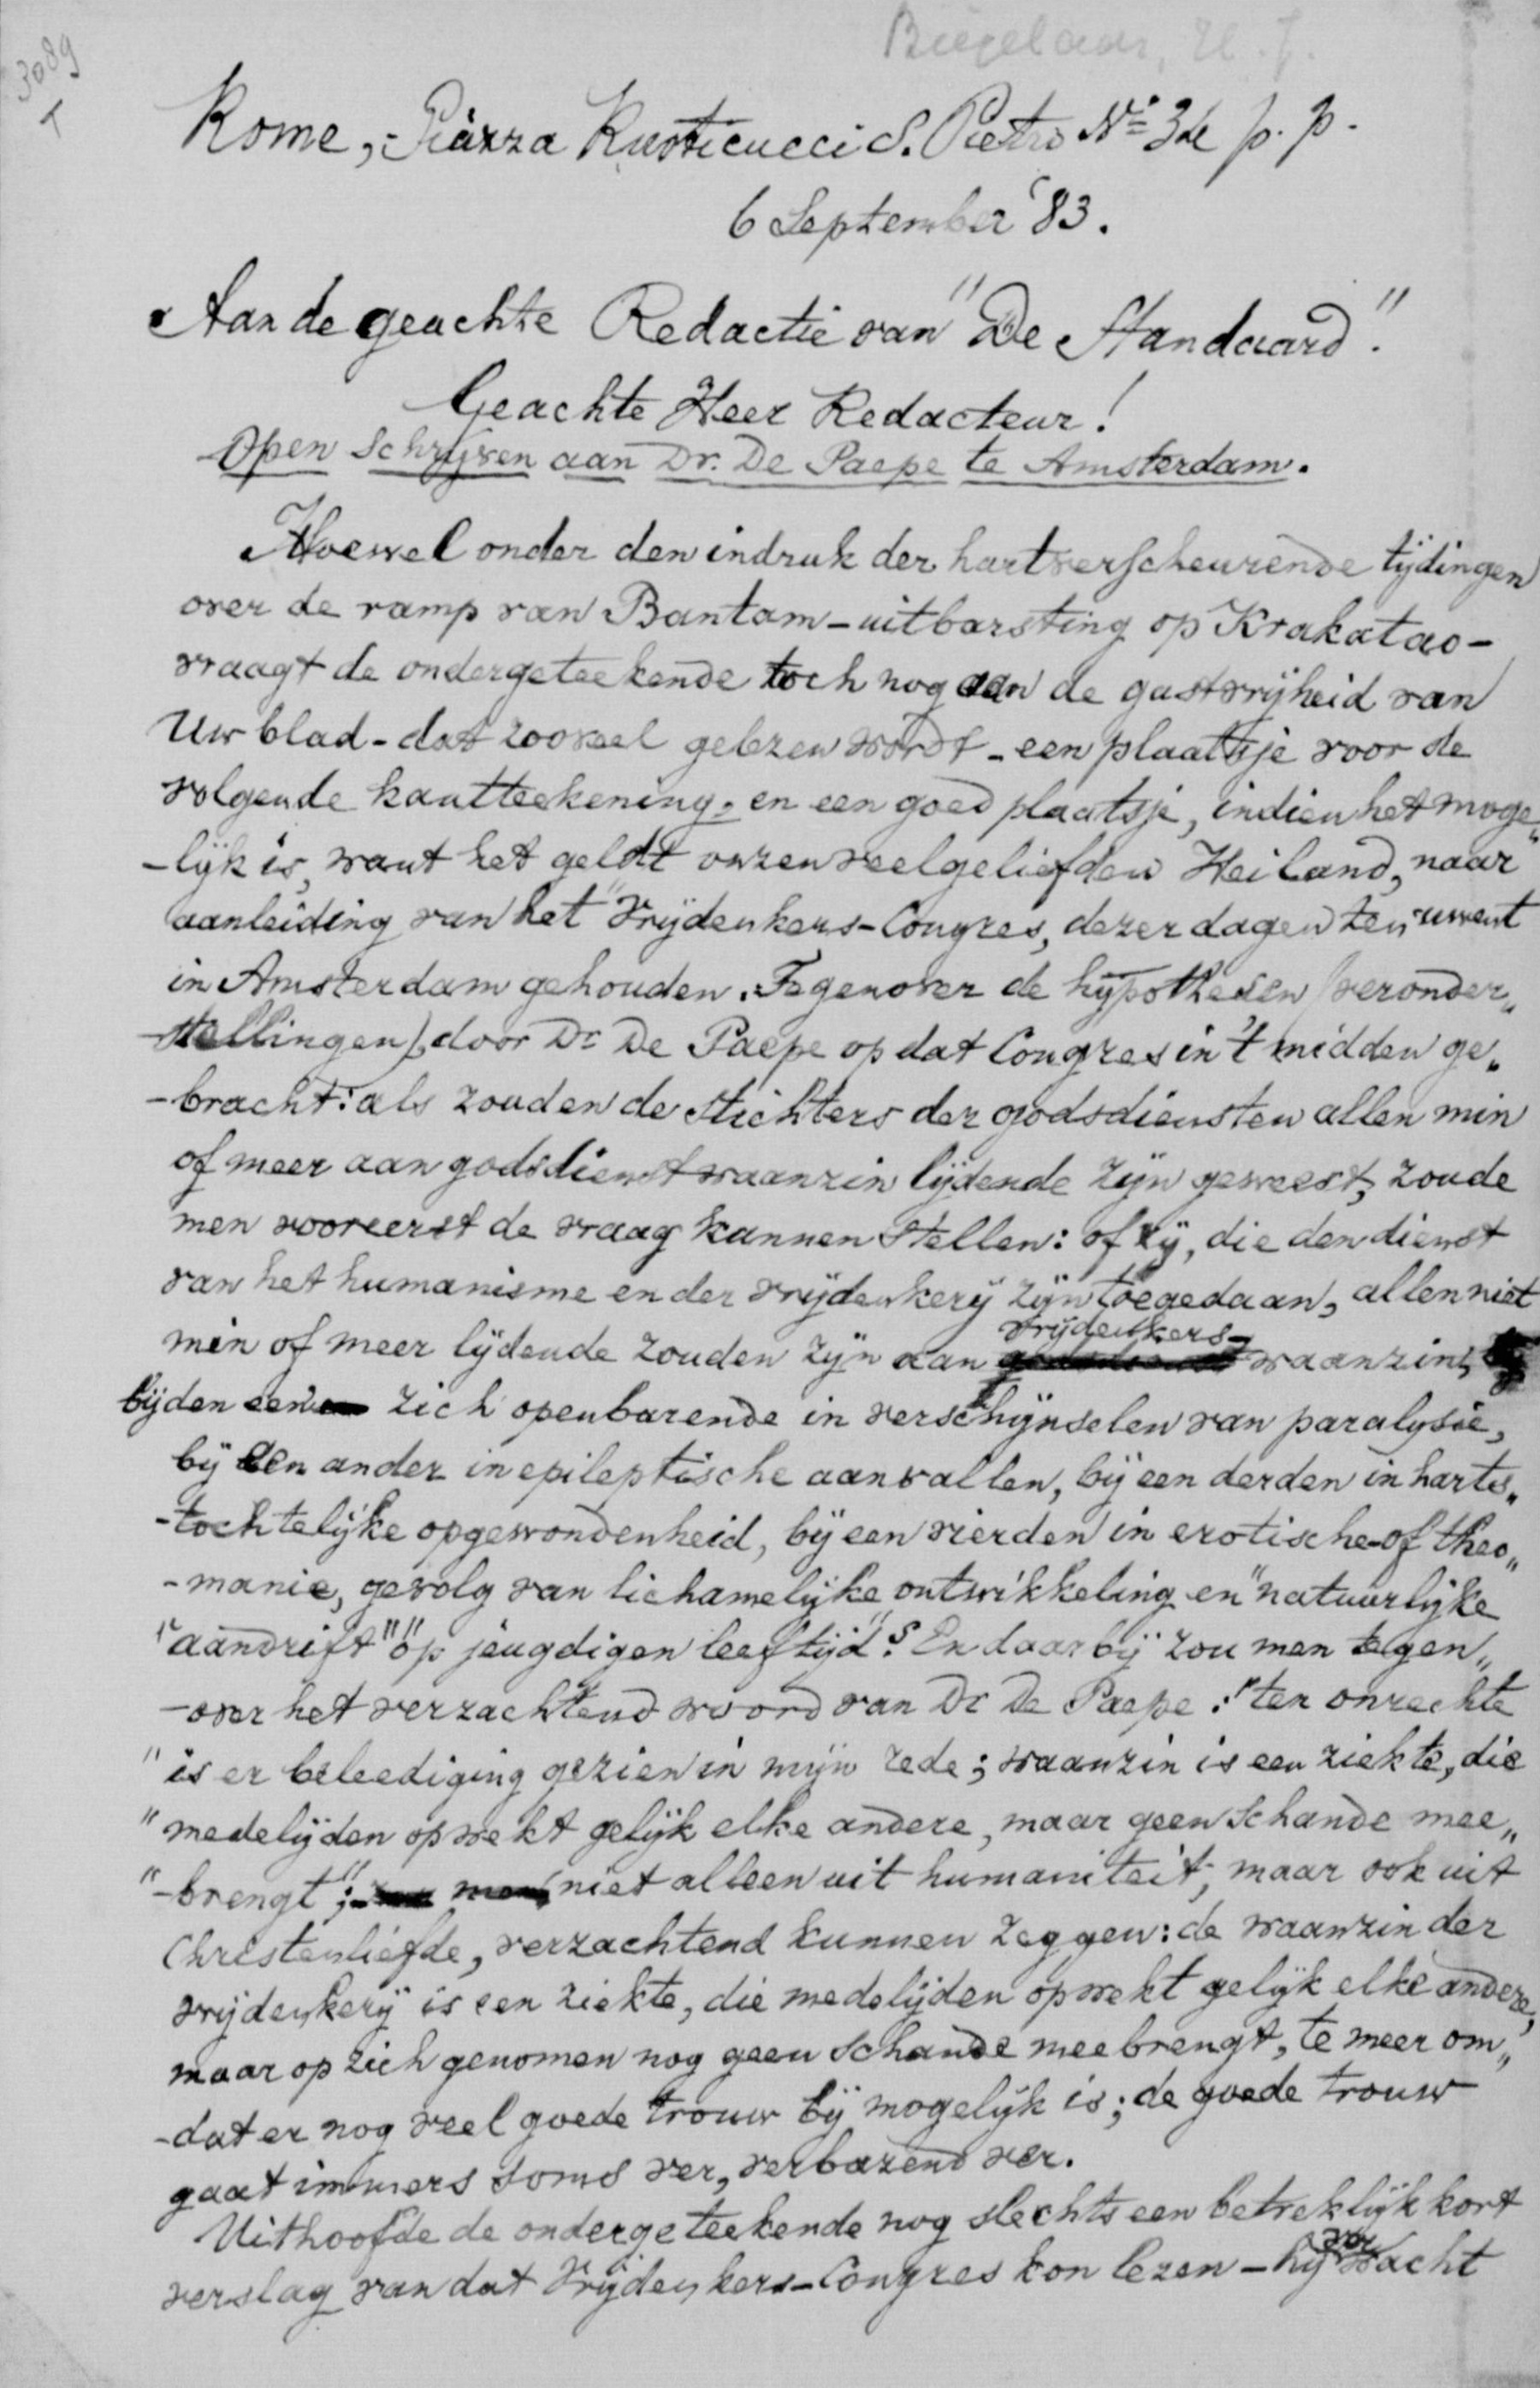 3089
T
Rome, - Piazza Rusticucci S. Pietro No 32 p. p.
6 September '83.
Aan de geachte Redactie van "De Standaard".
Geachte Heer Redacteur!
Open Schrijven aan Dr. De Paepe te Amsterdam.
Hoewel onder den indruk der hartverscheurende tijdingen
over de ramp van Bantam - uitbarsting op Krakatao -
vraagt de ondergeteekende toch nog aan de gastvrijheid van
Uw blad - dat zooveel gelezen wordt - een plaatsje voor de
volgende kantteekening, en een goed plaatsje, indien het moge„
-lijk is, want het geldt onzen veelgeliefden Heiland, naar
aanleiding van het "Vrijdenkers-Congres, dezer dagen ten uwent
in Amsterdam gehouden. Tegenover de hypothesen (veronder„
-stellingen), door Dr De Paepe op dat Congres in 't midden ge„
-bracht: als zouden de stichters der godsdiensten allen min
of meer aan godsdienstwaanzin lijdende zijn geweest, zoude
men vooreerst de vraag kunnen stellen: of zij, die den dienst
van het humanisme en der vrijdenkerij zijn toegedaan, allen niet
min of meer lijdende zouden zijn aan vrijdenkers- waanzin,
bij den een zich openbarende in verschijnselen van paralysie,
bij een ander in epileptische aanvallen, bij een derden in harts„
-tochtelijke opgewondenheid, bij een vierden in erotische-of theo„
-manie, gevolg van lichamelijke ontwikkeling en "natuurlijke
"aandrift" "op jeugdigen leeftijd"? En daarbij zou men tegen„
-over het verzachtend woord van Dr De Paepe: "ten onrechte
"is er beleediging gezien in mijn rede; waanzin is een ziekte, die
"medelijden opwekt gelijk elke andere, maar geen schande mee„
"-brengt"; niet alleen uit humaniteit, maar ook uit
Christenliefde, verzachtend kunnen zeggen: de waanzin der
vrijdenkerij is een ziekte, die medelijden opwekt gelijk elke andere,
maar op zich genomen nog geen schande meebrengt, te meer om„
-dat er nog veel goede trouw bij mogelijk is; de goede trouw
gaat immers soms ver, verbazend ver.
Uithoofde de ondergeteekende nog slechts een betreklijk kort
verslag van dat Vrijdenkers-Congres kon lezen - hij verwacht